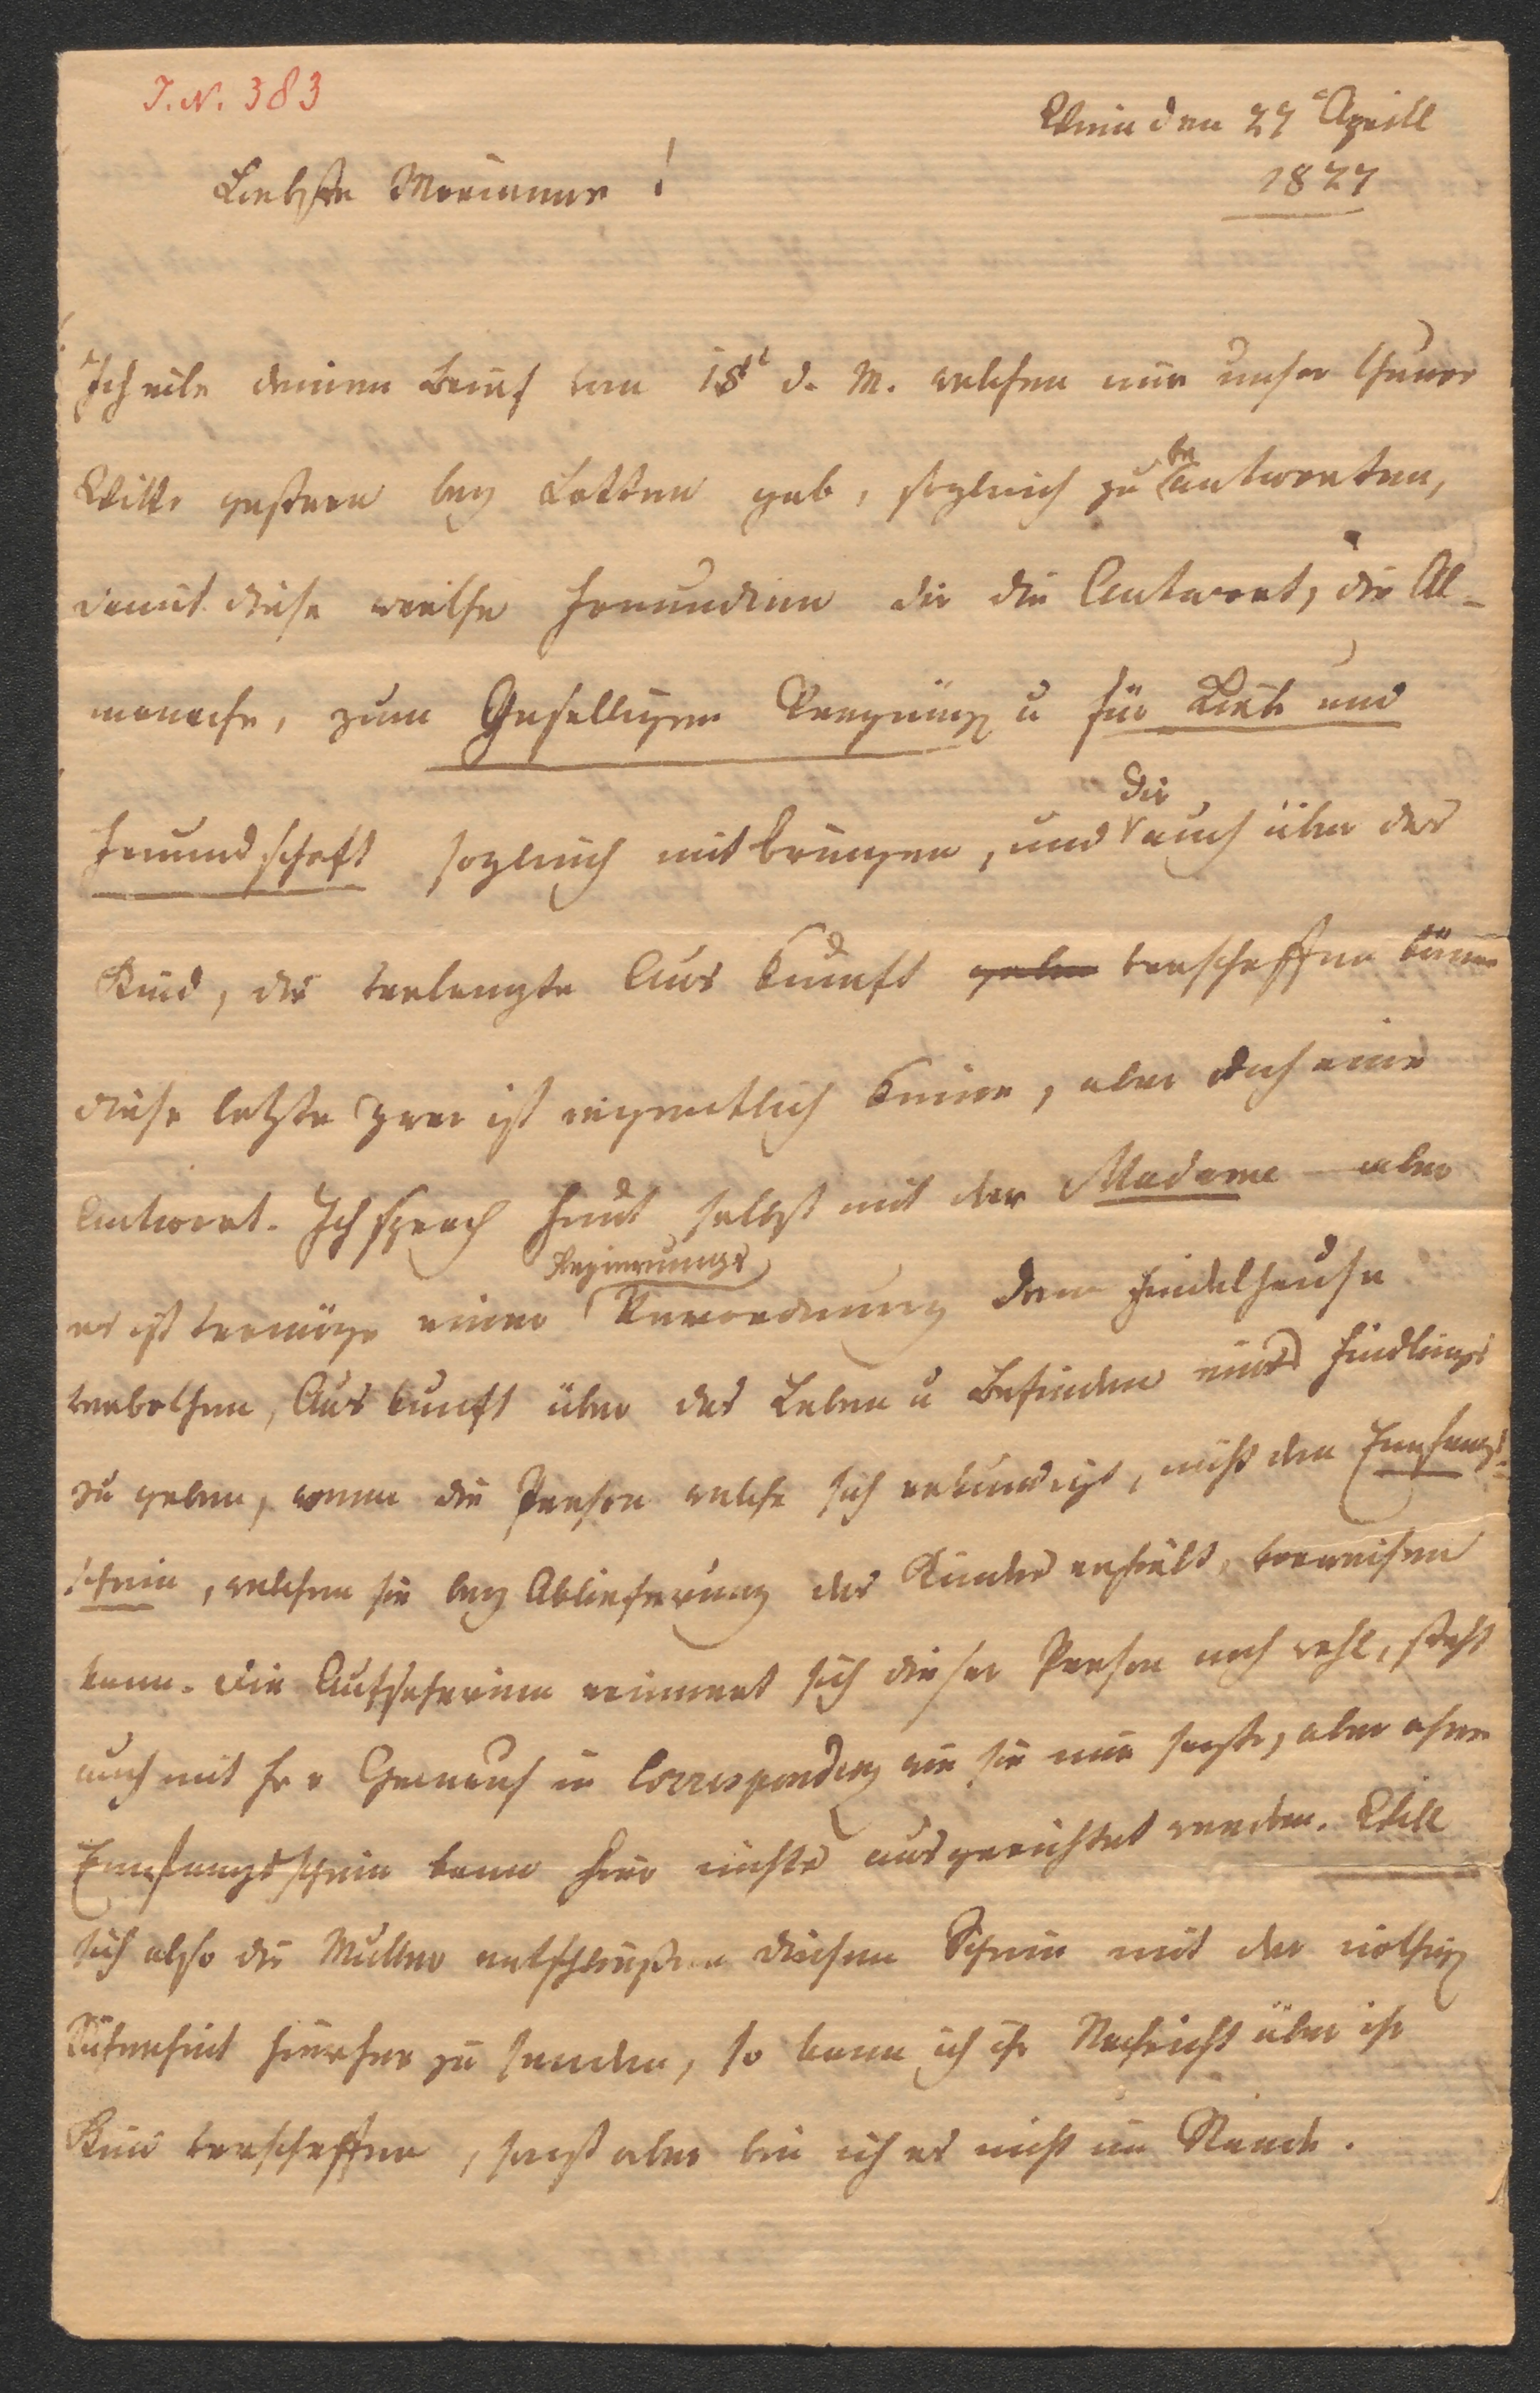 J. N. 383
Wien den 27t Aprill
1827
Liebste Marianne!
Ich eile deinen Brief vom 18t d. M. welchen mir unser
Witt. gestern bey Lotten gab, sogleich zu beantworten,
damit diese werthe Freundinn dir die Antwort, die Al-
manache, zum Geselligen Vergnüg u für Liebe und
Freundschaft sogleich mitbringen, und dir auch über das
Kind, die verlangte Auskunft geben verschaffen könne
diese letzte zwar ist eigentlich keine, aber doch eine
Antwort. Ich sprach heut selbst mit der Madame aber
es ist vermöge einer Regierungs Verordnung dem Findelhause
verbothen, Auskunft über das Leben u Befinden eines Findlings
zu geben, wenn die Person welche sich erkundigt, nicht den Empfangs-
schein, welchen sie bey Ablieferung des Kindes erhält, vorweisen
kann. Die Aufseherinn erinnert sich dieser Person noch wohl, steht
auch mit in Correspondenz wie sie mir sagte, aber ohne
Empfangsschein kann hier nichts ausgerichtet werden. Will
sich also die Mutter entschließen diesen Schein mit der nöthig
Sicherheit hierher zu senden, so kann ich ihr Nachricht über ihr
Kind verschaffen, sonst aber bin ich es nicht im Stande.